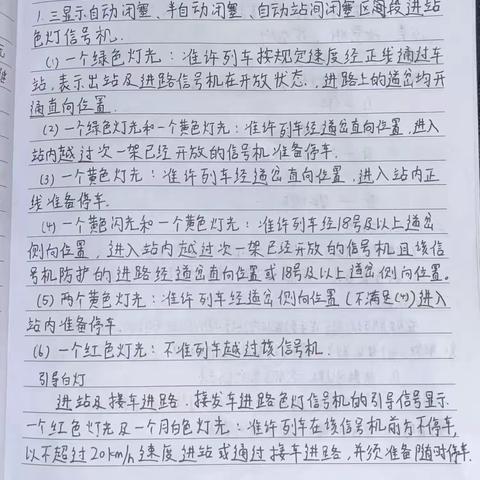 1. 三显示自动闭塞、半自动闭塞、自动站间闭塞区段进站
色灯信号机.
(1) 一个绿色灯光：准许列车按规定速度经正线通过车
站,表示出站及进路信号机在开放状态.,进路上的道岔均开
通直向位置.
(2) 一个绿色灯光和一个黄色灯光：准许列车经道岔直向位置,进入
站内越过次一架已经开放的信号机准备停车.
(3) 一个黄色灯光：准许列车经道岔直向位置,进入站内正
线准备停车.
(4) 一个黄闪光和一个黄色灯光：准许列车经18号及以上道岔
侧向位置,进入站内越过次一架已经开放的信号机且该信
号机防护的进路经道岔直向位置或18号及以上道岔侧向位置。
(5) 两个黄色灯光：准许列车经道岔侧向位置(不满足(4))进入
站内准备停车.
(6) 一个红色灯光：不准列车越过该信号机.
引导白灯
进站及接车进路、接发车进路色灯信号机的引导信号显示
一个红色灯光及一个月白色灯光：准许列车在该信号机前方不停车,
以不超过20km/h速度进站或通过接车进路,并须准备随时停车.